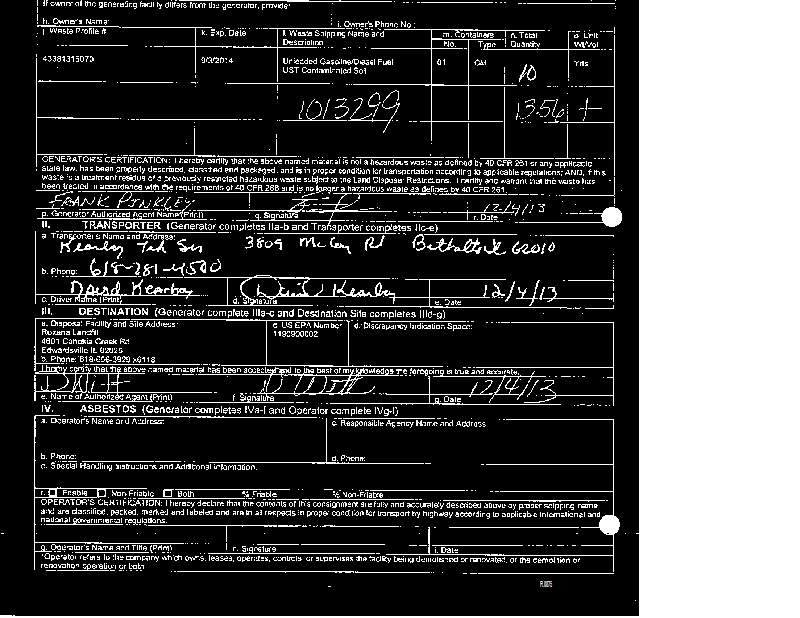 If owner of the generating facility differs from the generator, provide:
h. Owner's Name: i. Owner's Phone No.:
j. Waste Profile # k. Exp. Date l. Waste Shipping Name and Description m. Containers No. Type n. Total Quantity o. Unit Wt/Vol
43381315070 9/3/2014 Unleaded Gasoline/Diesel Fuel 01 10 Yds
UST Contaminated Soil
1013299 13.56 t
GENERATOR'S CERTIFICATION: I hereby certify that the above named material is not a hazardous waste as defined by 40 CFR 261 or any applicable
state law, has been properly described, classified and packaged, and is in proper condition for transportation according to applicable regulations; AND, if this
waste is a treatment residue of a previously restricted hazardous waste subject to the Land Disposal Restrictions. I certify and warrant that the waste has
been treated in accordance with the requirements of 40 CFR 268 and is no longer a hazardous waste as defined by 40 CFR 261.
FRANK PINKLEY 12/4/13
p. Generator Authorized Agent Name (Print) q. Signature r. Date
II. TRANSPORTER (Generator completes IIa-b and Transporter completes IIc-e)
a. Transporter's Name and Address:
Kearby 3809 McCoy Rd 62010
b. Phone: 618-281-4500
David Kearby David Kearby 12/4/13
c. Driver Name (Print) d. Signature e. Date
III. DESTINATION (Generator complete IIIa-c and Destination Site completes IIId-g)
a. Disposal Facility and Site Address: c. US EPA Number d. Discrepancy Indication Space:
Roxana Landfill 1190900002
4601 Cahokia Creek Rd
Edwardsville IL 62025
b. Phone: 618-656-3929 x6118
I hereby certify that the above named material has been accepted and to the best of my knowledge the foregoing is true and accurate.
D Witt D Witt 12/4/13
e. Name of Authorized Agent (Print) f. Signature g. Date
IV. ASBESTOS (Generator completes IVa-f and Operator complete IVg-i)
a. Operator's Name and Address: c. Responsible Agency Name and Address
b. Phone: d. Phone:
e. Special Handling Instructions and Additional Information:
f. Friable Non-Friable Both % Friable % Non-Friable
OPERATOR'S CERTIFICATION: I hereby declare that the contents of this consignment are fully and accurately described above by proper shipping name
and are classified, packed, marked and labeled and are in all respects in proper condition for transport by highway according to applicable international and
national governmental regulations.
g. Operator's Name and Title (Print) h. Signature i. Date
*Operator refers to the company which owns, leases, operates, controls, or supervises the facility being demolished or renovated, or the demolition or
renovation operation or both